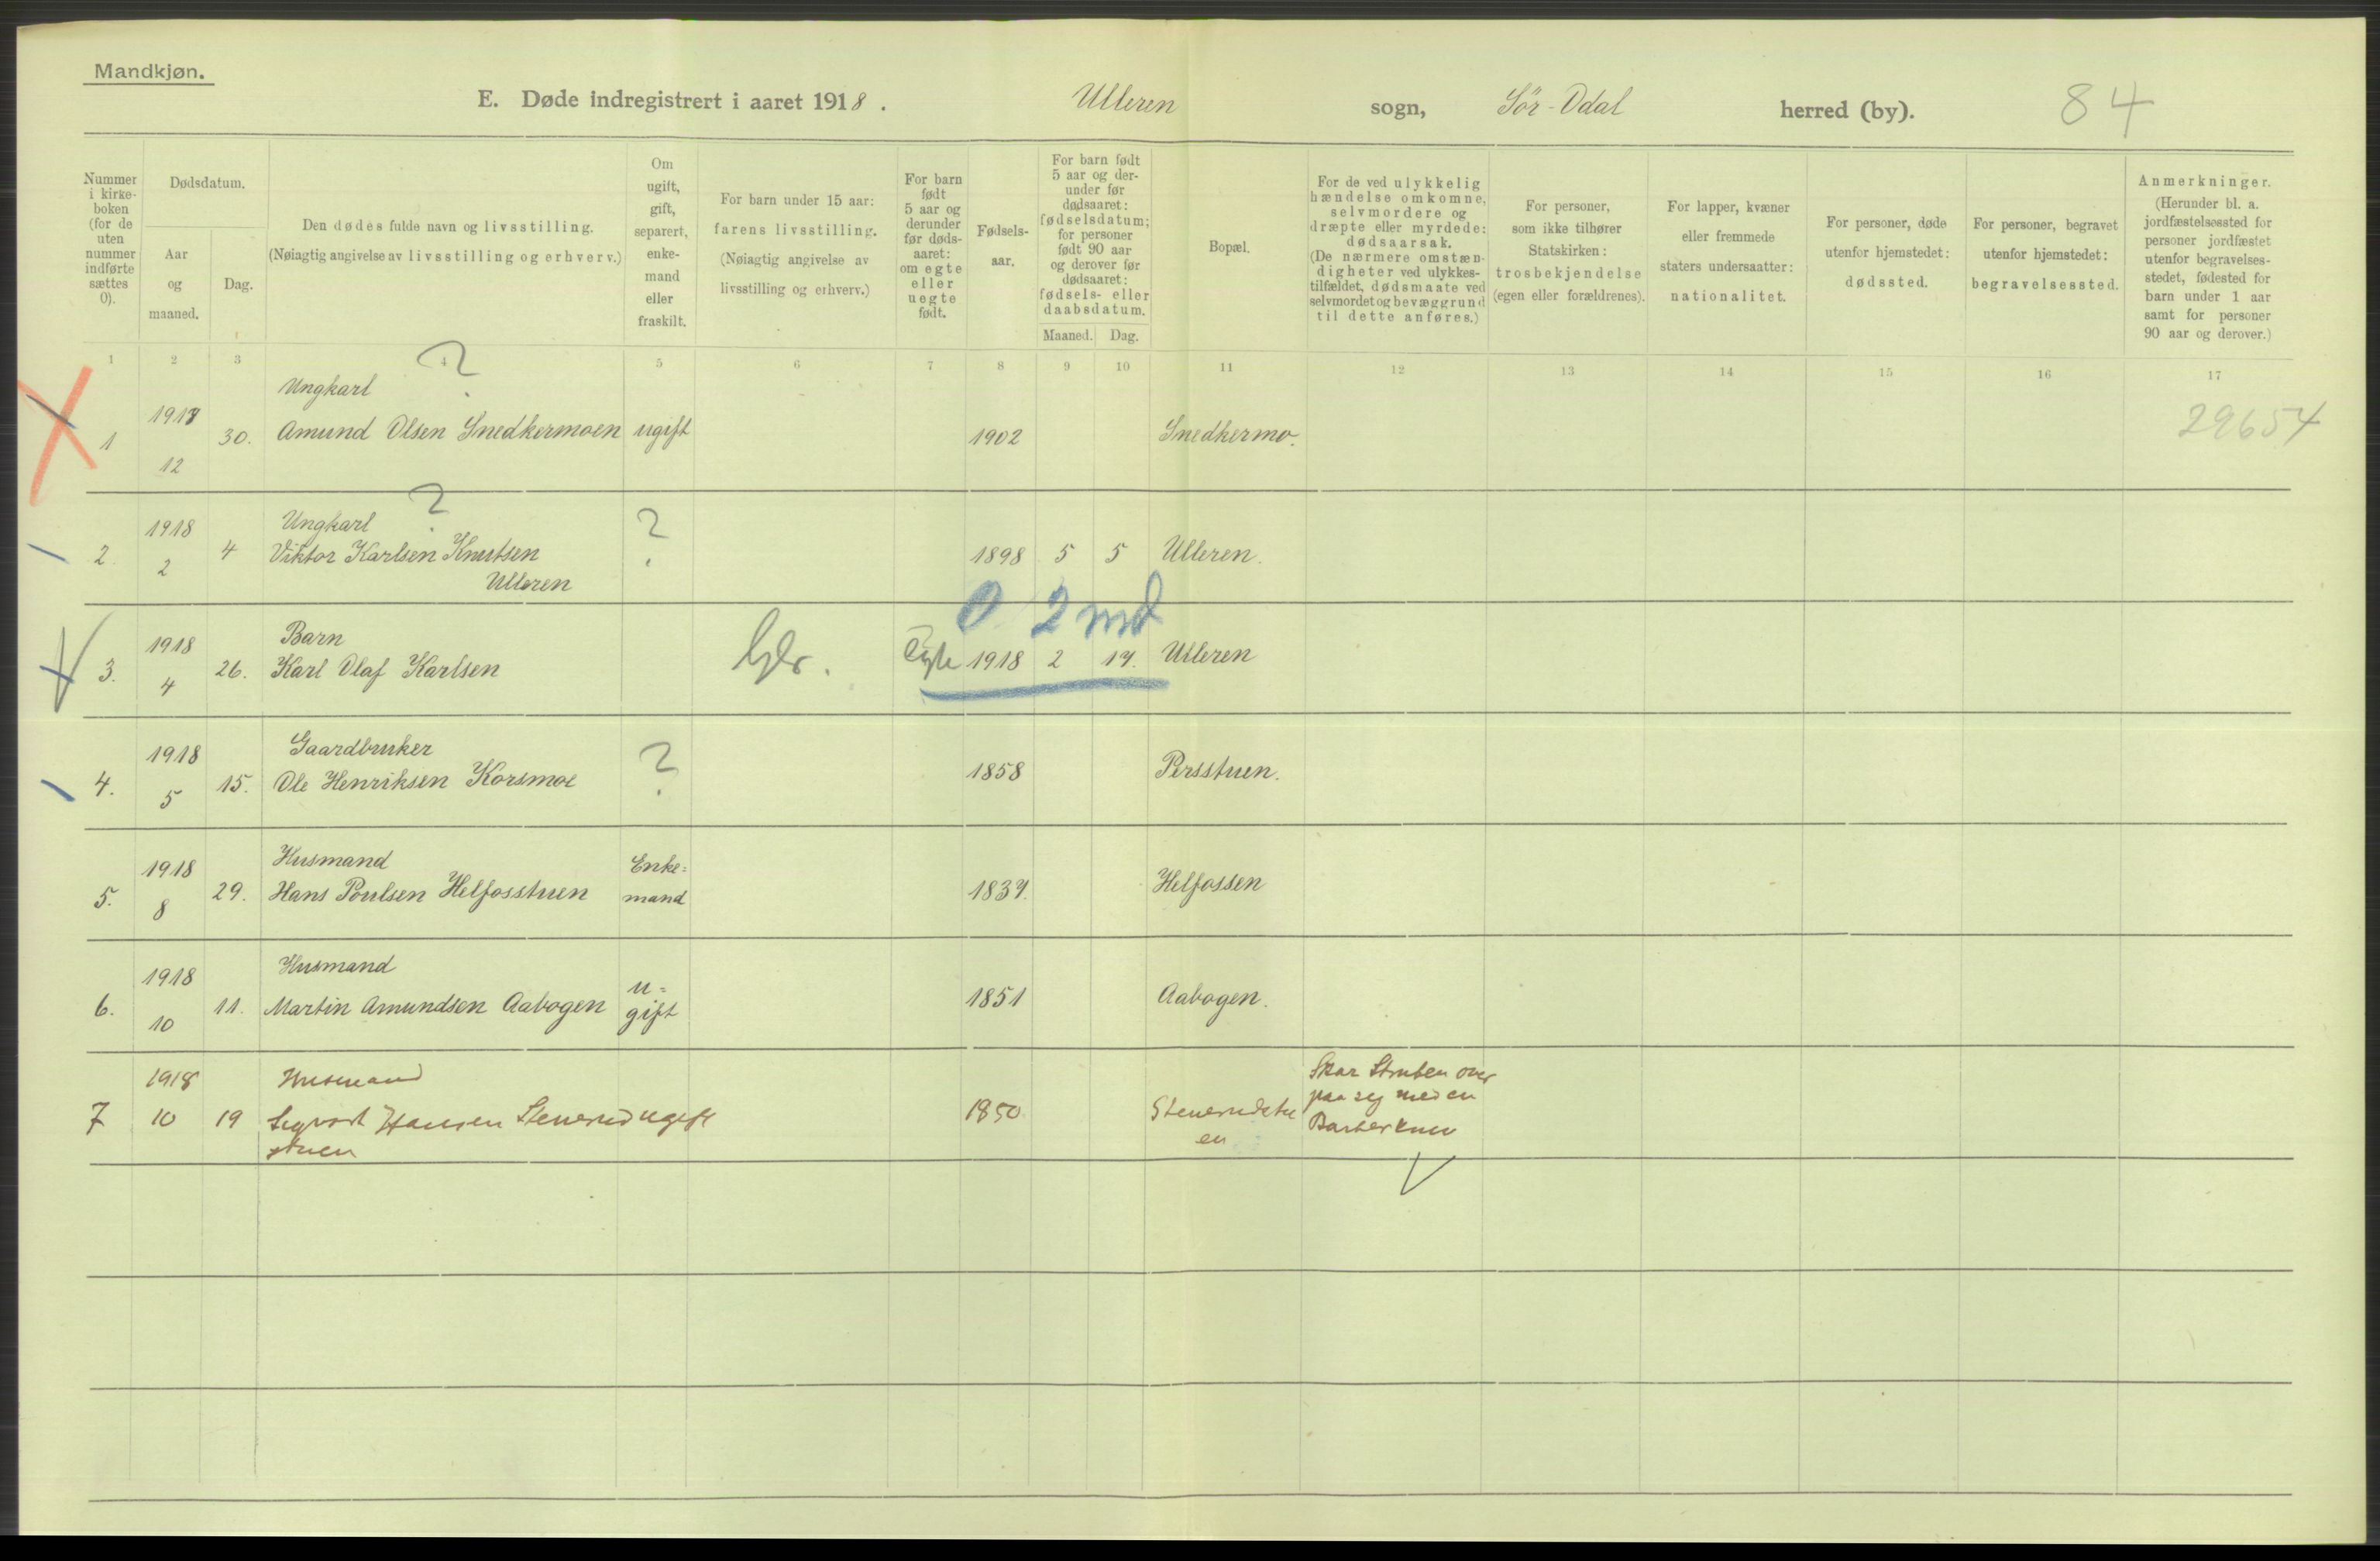 Mandkjøn.
E. Døde indregistrert i aaret 1918. Ulleren sogn, Sör-Odal herred (by). 84
Nummer i kirke-boken (for de uten nummer indførte sættes 0).
Dødsdatum.
Aar og maaned.
Dag.
Den dødes fulde navn og livsstilling.
(Nøiagtig angivelse av livsstilling og erhverv.)
Om ugift, gift, separert, enke-mand eller fraskilt.
For barn under 15 aar: farens livsstilling.
(Nøiagtig angivelse av livsstilling og erhverv.)
For barn født 5 aar og derunder før døds-aaret: om egte eller uegte født.
Fødsels-aar.
For barn født 5 aar og der-under før dødsaaret: fødselsdatum; for personer født 90 aar og derover før dødsaaret: fødsels- eller daabsdatum.
Maaned. Dag.
Bopæl.
For de ved ulykkelig hændelse omkomne, selvmordere og dræpte eller myrdede: dødsaarsak.
(De nærmere omstæn-digheter ved ulykkes-tilfældet, dødsmaate ved selvmordet og bevæggrund til dette anføres.)
For personer, som ikke tilhører Statskirken: trosbekjendelse (egen eller forældrenes).
For lapper, kvæner eller fremmede staters undersaatter: nationalitet.
For personer, døde utenfor hjemstedet: dødssted.
For personer, begravet utenfor hjemstedet: begravelsessted.
Anmerkninger.
(Herunder bl. a. jordfæstelsessted for personer jordfæstet utenfor begravelses-stedet, fødested for barn under 1 aar samt for personer 90 aar og derover.)
1 2 3 4 5 6 7 8 9 10 11 12 13 14 15 16 17
?
Ungkarl
1 1917 12 30. Amund Olsen Snedkermoen ugift 1902 Snedkermo. 29654
?
Ungkarl ?
2. 1918 2 4 Viktor Karlsen Knutsen 1898 5 5 Ulleren.
Ulleren
0 2 md
Barn
3. 1918 4 26. Karl Olaf Karlsen Gbr. Egte 1918 2 17. Ulleren
Gaardbruker
4. 1918 5 15. Ole Henriksen Korsmoe ? 1858 Persstuen.
Husmand Enke=
5. 1918 8 29. Hans Poulsen Helfosstuen mand 1837. Helfossen
Husmand u=
6. 1918 10 11. Martin Amundsen Aabogen gift 1851 Aabogen.
1918 Husmand Skar Struben over
7 10 19 Sigvart Hansen Stenerud ugift 1850 Stenerudstu paa seg med en
stuen en Barberkniv